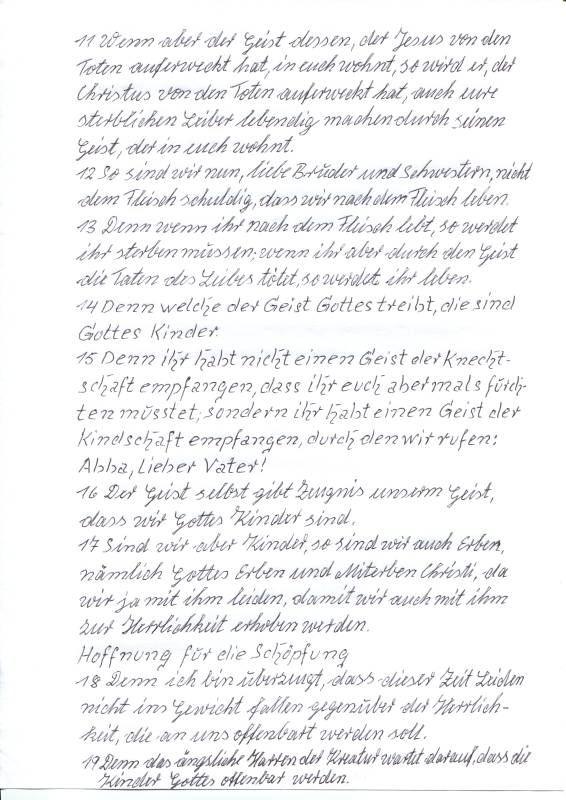 11 Wenn aber der Geist dessen, der Jesus von den
Toten auferweckt hat, in euch wohnt, so wird er, der
Christus von den Toten auferweckt hat, auch eure
sterblichen Leiber lebendig machen durch seinen
Geist, der in euch wohnt.
12 So sind wir nun, liebe Brüder und Schwestern, nicht
dem Fleisch schuldig, dass wir nach dem Fleisch leben.
13 Denn wenn ihr nach dem Fleisch lebt, so werdet
ihr sterben müssen; wenn ihr aber durch den Geist
die Taten des Leibes tötet, so werdet ihr leben.
14 Denn welche der Geist Gottes treibt, die sind
Gottes Kinder.
15 Denn ihr habt nicht einen Geist der Knecht-
schaft empfangen, dass ihr euch abermals fürch-
ten müsstet; sondern ihr habt einen Geist der
Kindschaft empfangen, durch den wir rufen:
Abba, Lieber Vater!
16 Der Geist selbst gibt Zeugnis unserm Geist,
dass wir Gottes Kinder sind.
17 Sind wir aber Kinder, so sind wir auch Erben,
nämlich Gottes Erben und Miterben Christi, da
wir ja mit ihm leiden, damit wir auch mit ihm
zur Herrlichkeit erhoben werden.
Hoffnung für die Schöpfung
18 Denn ich bin überzeugt, dass dieser Zeit Leiden
nicht ins Gewicht fallen gegenüber der Herrlich-
keit, die an uns offenbart werden soll.
19 Denn das ängstliche Harren der Kreatur wartet darauf, dass die
Kinder Gottes offenbar werden.